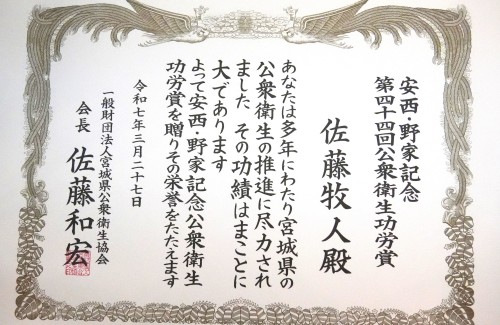 安西・野家記念
第四十四回公衆衛生功労賞
佐藤牧人殿
あなたは多年にわたり宮城県の
公衆衛生の推進に尽力され
ました その功績はまことに
大であります
よって安西・野家記念公衆衛生
功労賞を贈りその栄誉をたたえます
令和七年三月二十七日
一般財団法人宮城県公衆衛生協会
会長 佐藤和宏